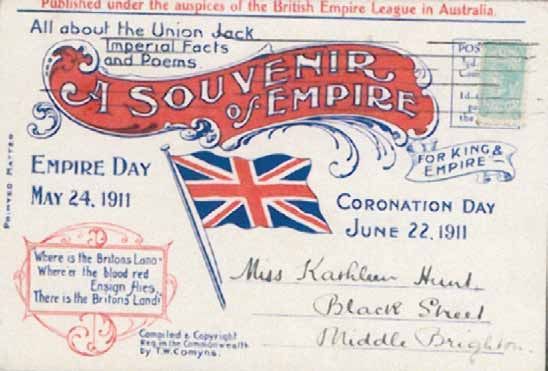 Published under the auspices of the British Empire League in Australia.
All about the Union Jack
Imperial Facts
and Poems.
A SOUVENIR
OF EMPIRE
FOR KING &
EMPIRE
EMPIRE DAY
MAY 24, 1911
CORONATION DAY
JUNE 22, 1911
PRINTED MATTER
Where is the Britons Land
Where'er the blood red
Ensign flies,
There is the Britons' Land!
Miss Kathleen Hunt,
Black Street
Middle Brighton.
Compiled & Copyright
Reg. in the Commonwealth
by T.W. Comyns.